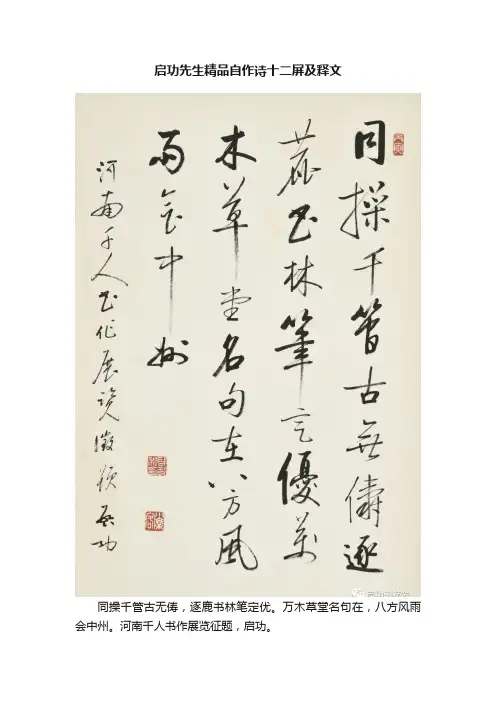 启功先生精品自作诗十二屏及释文
同操千管古無儔逐
鹿书林筆定優萬
木草堂名句在八方風
雨會中州
河南千人书作展覽徵題 启功
同操千管古无俦，逐鹿书林笔定优。万木草堂名句在，八方风雨
会中州。河南千人书作展览征题，启功。